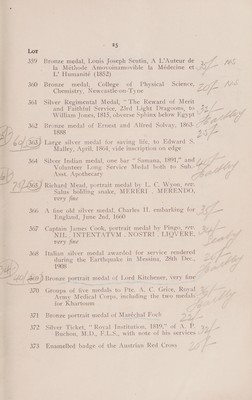 25
Lot
359 Bronze medal, Louis Joseph Seutin, A L'Auteur de
la Méthode Amovoinamovible la Médecine et
L' Humanité (1852)
360 Bronze medal, College of Physical Science,
Chemistry, Newcastle-on-Tyne
361 Silver Regimental Medal, "The Reward of Merit
and Faithful Service, 23rd Light Dragoons, to
William Jones, 1815, obverse Sphinx below Egypt
362 Bronze medal of Ernest and Alfred Solvay, 1863-
1888
363 Large silver medal for saving life, to Edward S.
Malley, April, 1864, vide inscription on edge
364 Silver Indian medal, one bar "Samana, 1891," and
Volunteer Long Service Medal both to Sub-
Asst. Apothecary
365 Richard Mead, portrait medal by L. C. Wyon, rev.
Salus holding snake, MERERI . MERENDO,
very fine
366 A fine old silver medal, Charles II. embarking for
England, June 2nd, 1660
367 Captain James Cook, portrait medal by Pingo, rev.
NIL . INTENTATVM . NOSTRI . LIQVERE,
very fine
368 Italian silver medal awarded for service rendered
during the Earthquake in Messina, 28th Dec.,
1908
369 Bronze portrait medal of Lord Kitchener, very fine
370 Groups of five medals to Pte. A. C. Grist, Royal
Army Medical Corps, including the two medals
for Khartoum
371 Bronze portrait medal of Maréchal Foch
372 Silver Ticket, "Royal Institution, 1819," of A. P.
Buchan, M.D., F.L.S., with note of his services
373 Enamelled badge of the Austrian Red Cross